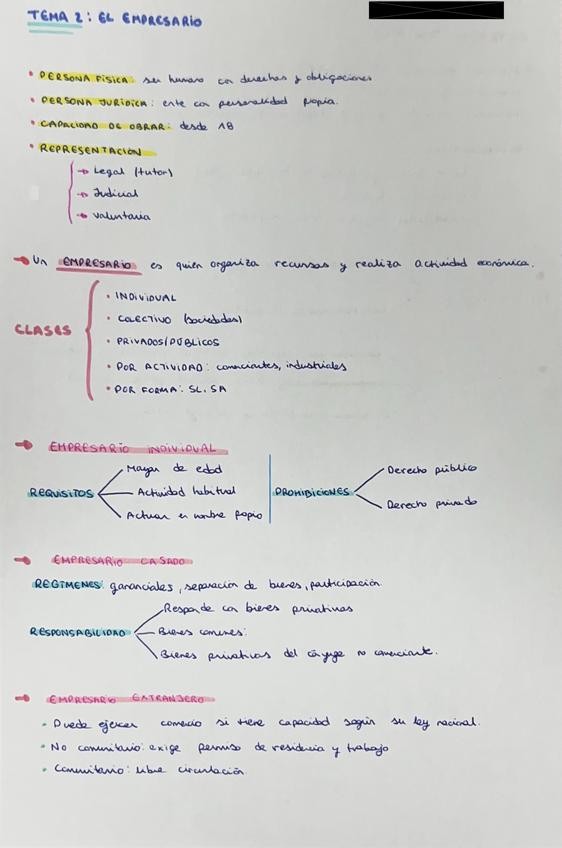 TEMA 2: EL EMPRESARIO
• PERSONA FÍSICA: ser humano con derechos y obligaciones
• PERSONA JURÍDICA: ente con personalidad propia.
• CAPACIDAD DE OBRAR: desde 18
• REPRESENTACIÓN
→ Legal (tutor)
→ Judicial
→ Voluntaria
→ Un EMPRESARIO es quien organiza recursos y realiza actividad económica.
CLASES
• INDIVIDUAL
• COLECTIVO (sociedades)
• PRIVADOS/PÚBLICOS
• POR ACTIVIDAD: comerciantes, industriales
• POR FORMA: SL. SA
→ EMPRESARIO INDIVIDUAL
REQUISITOS
Mayor de edad
Actividad habitual
Actuar en nombre propio
PROHIBICIONES
Derecho público
Derecho privado
→ EMPRESARIO CASADO
REGÍMENES: gananciales, separación de bienes, participación.
RESPONSABILIDAD
Responde con bienes privativos
Bienes comunes:
Bienes privativos del cónyuge no comerciante.
→ EMPRESARIO EXTRANJERO
• Puede ejercer comercio si tiene capacidad según su ley nacional.
• No comunitario: exige permiso de residencia y trabajo
• Comunitario: libre circulación.